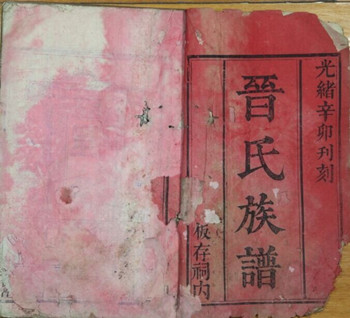 光緒辛卯刊刻
晉氏族譜
板存祠內